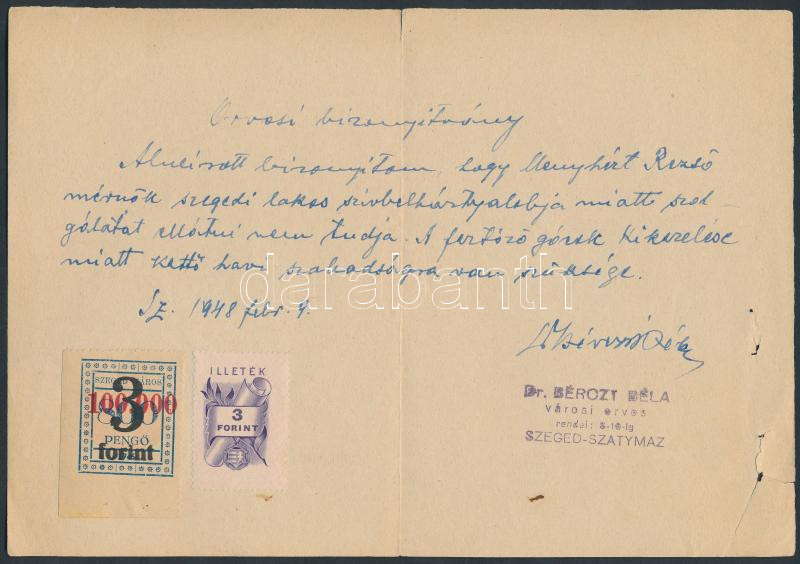 Orvosi bizonyitvány
Alulirott bizonyitom, hogy Menyhért Rezső
mérnök szegedi lakos szivbelhártyalobja miatt szol-
gálatát ellátni nem tudja. A fertőző gócok kikezelése
miatt kettő havi szabadságra van szüksége.
Sz. 1948 febr. 9.
darabanth
Dr. BÉRCZY BÉLA
városi orvos
rendel: 8-10-ig
SZEGED-SZATYMAZ
SZEGED VÁROS
3
100.000
PENGŐ
forint
ILLETÉK
3
FORINT